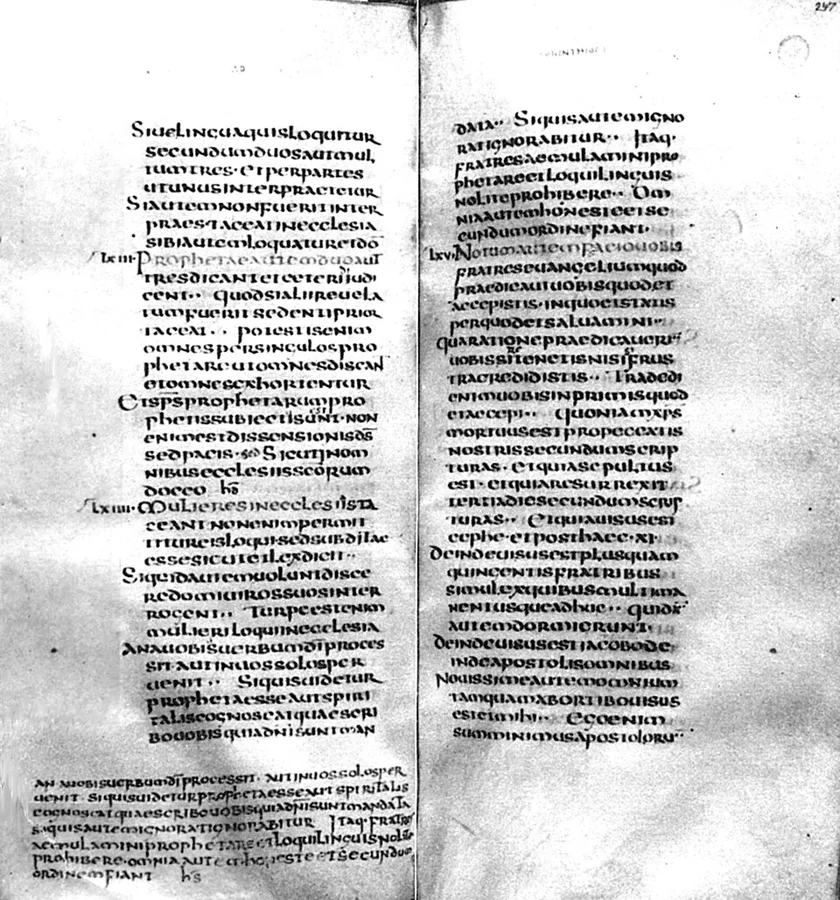 247
Siuelinguaquisloquitur
secundumduosautmul,
tumtres·etperpartes
utunusinterpraetetur
Siautemnonfueritinter
praes·taceatinecclesia
sibiautemloquaturetdō
lxiii·Prophetaeautemduoaut
tresdicantetceteriiudi
cent·· quodsialiireuela
tumfueritsedentiprior
taceat·· potestisenim
omnespersingulospro
phetareutomnesdiscan
etomnesexhortentur
Etspsprophetarumpro
phetissubiectisunt·non
enimestdissensionisds
sedpacis·Sicutinom
nibusecclesiisscorum
doceo hs
lxiiii·Mulieresinecclesiista
ceantnonenimpermit
titureisloquisedsubditae
essesicutetlexdicit··
Siquidautemuoluntdisce
redomiuirossuosinter
rogent·· Turpeestenim
mulieriloquiinecclesia
Anauobisuerbumdīproces
sit·autinuossolosper
uenit·· Siquisuidetur
prophetaesseautspiri
taliscognoscatquaescri
bouobisquiadnīsuntman
an auobisuerbumdīprocessit·autinuossolosper
uenit·siquisuideturprophetaesseautspiritalis
cognoscatquaescribouobisquiadnīsuntmandata
siquisautemignoratignorabitur Itaq·fratres
aemulaminiprophetareetloquilinguisnolite
prohibere·omniaautemhonesteetsecundum
ordinemfiant hs
data·· Siquisautemigno
ratignorabitur·· Itaq·
fratresaemulaminipro
phetareetloquilinguis
noliteprohibere·· Om
niaautemhonesteetse
cundumordinefiant·
lxv·Notumautemfaciouobis
fratreseuangeliumquod
praedicauiuobisquodet
accepistis·inquoetstatis
perquodetsaluamini··
quarationepraedicauerī
uobissitenetisnisifrus
tracredidistis·· Tradedi
enimuobisinprimisquod
etaccepi·· quoniamxps
mortuusestpropeccatis
nostrissecundumscrip
turas·etquiasepultus
est·etquiaresurrexit
tertiadiesecundumscrip
turas·· Etquiauisusest
cephe·etposthaec·xi·
Deindeuisusestplusquam
quingentisfratribus
simulexquibusmultima
nentusqueadhuc·· quidā
autemdormierunt·
Deindeuisusestiacobode
indeapostolisomnibus
Nouissimeautemomnium
tamquamabortibouisus
estetmihi·· Egoenim
summinimusapostolorū··